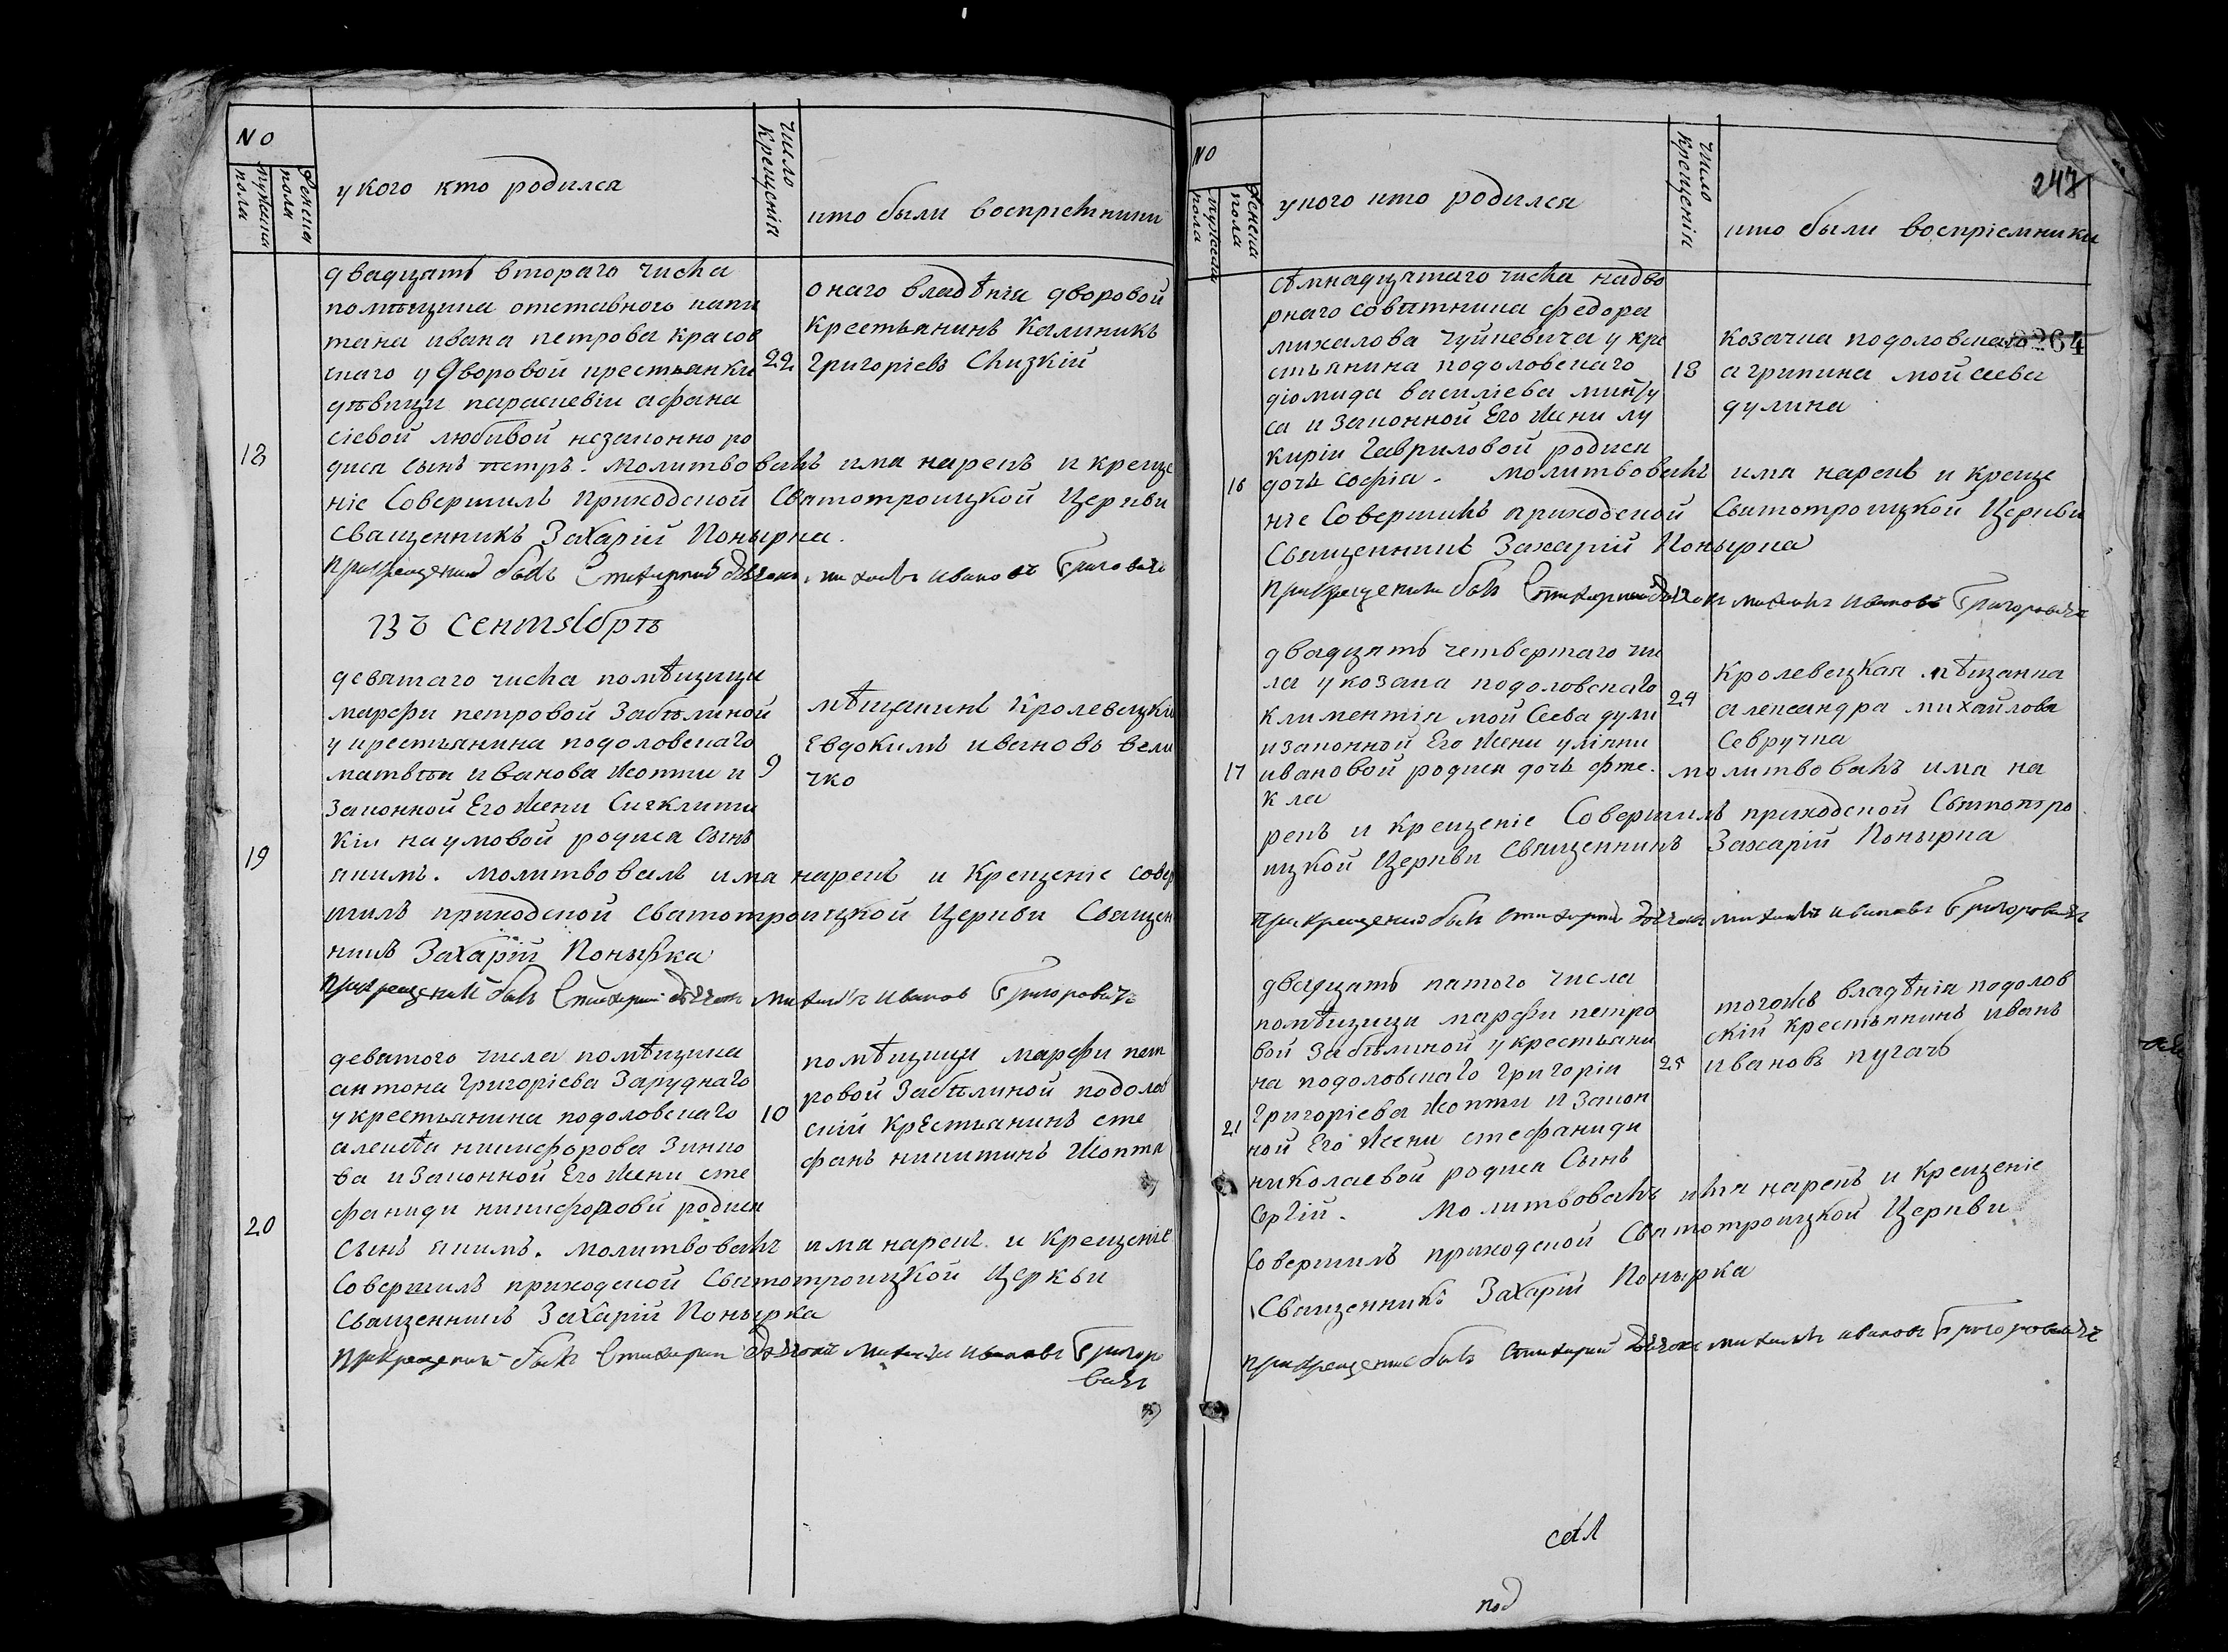 NO
мужеска пола
женска пола
у кого кто родился
число крещенія
кто были воспріемники
двадцать втораго числа
помѣщика отставного капи
тана ивана петрова красов
скаго у дворовой крестьянки
дѣвици параскевіи афана
сіевой любивой незаконно ро
18
дися сынъ петръ. молитвовалъ имя нарекъ и креще
ніе Совершилъ приходской Святотроицкой Церкви
Священникъ Захарій Понырка.
при крещеніи былъ Стихарный дьячокъ михаилъ ивановъ Григоровичъ
22
онаго владѣнія дворовой
крестьянинъ Калиникъ
Григоріевъ Слизкій
въ сентябрѣ
девятаго числа помѣщици
марфи петровой Забѣлиной
у крестьянина подоловскаго
матвѣя иванова Жопти и
законной Его Жени Сигклити
кіи наумовой родися Сынъ
19
якимъ. молитвовалъ имя нарекъ и Крещеніе совер
шилъ приходской святотроицкой Церкви Священ
никъ Захарій Понырка
при крещеніи былъ Стихарній дьячокъ михаилъ ивановъ Григоровичъ
9
мѣщанинъ Кролевецкій
Евдокимъ ивановъ вели
чко
девятого числа помѣщика
антона Григоріева Заруднаго
у крестьянина подоловскаго
алексѣя никифорова Зинко
ва и Законной Его Жени сте
фаниди никифорови родися
20
Сынъ якимъ. молитвовалъ имя нарекъ и Крещеніе
Совершилъ приходской Святотроицкой Церкви
Священникъ Захарій Понырка
при крещеніи былъ Стихарни дьячокъ михаилъ ивановъ Григоро
вичъ
10
помѣщици марфи пет
ровой Забѣлиной подолов
скій крЕстьянинъ сте
фанъ никитинъ Жоптя
NO
мужеска пола
женска пола
у кого кто родился
число крещенія
кто были воспріемники
247
264
сѣмнадцятаго числа надво
рнаго совѣтника федора
михалова чуйкевича у кре
стьянина подоловскаго
діомида василіева
са и законной Его Жени лу
киріи Гавриловой родися
16
дочь софія. молитвовалъ имя нарекъ и креще
ніе Совершилъ приходской Святотроицкой Церкви
Священникъ Захарій Понырка
при крещеніи былъ Стихарній дьячокъ михаилъ ивановъ Григоровичъ
18
козачка подоловская
агрипина мойсеева
дулина
двадцять четвертаго чис
ла у козака подоловскаго
климентія мойсеева дули
и законной Его Жени уліяни
17
ивановой родися дочь фте.
кла
молитвовалъ имя на
рекъ и крещеніе Совершилъ приходской Святотро
ицкой Церкви Священникъ Захарій Понырка
при крещеніи былъ стихарній дьячокъ михаилъ ивановъ Григоровичъ
24
Кролевецкая мѣщанка
александра михайлова
Севручка
дваццать пятого числа
помѣщици марфи петро
вой Забѣлиной у крестьяни
на подоловскаго Григорія
Григоріева Жопти и Закон
21
ной Его Жени стефаниди
николаевой родися Сынъ
Сергій. молитвовалъ имя нарекъ и Крещеніе
Совершилъ приходской Святотроицкой Церкви
Священникъ Захарій Понырка
при крещеніи былъ Стихарній дьячокъ михаилъ ивановъ Григоровичъ
25
тогожъ владѣнія подолов
скій крестьянинъ иванъ
ивановъ пугачъ
под